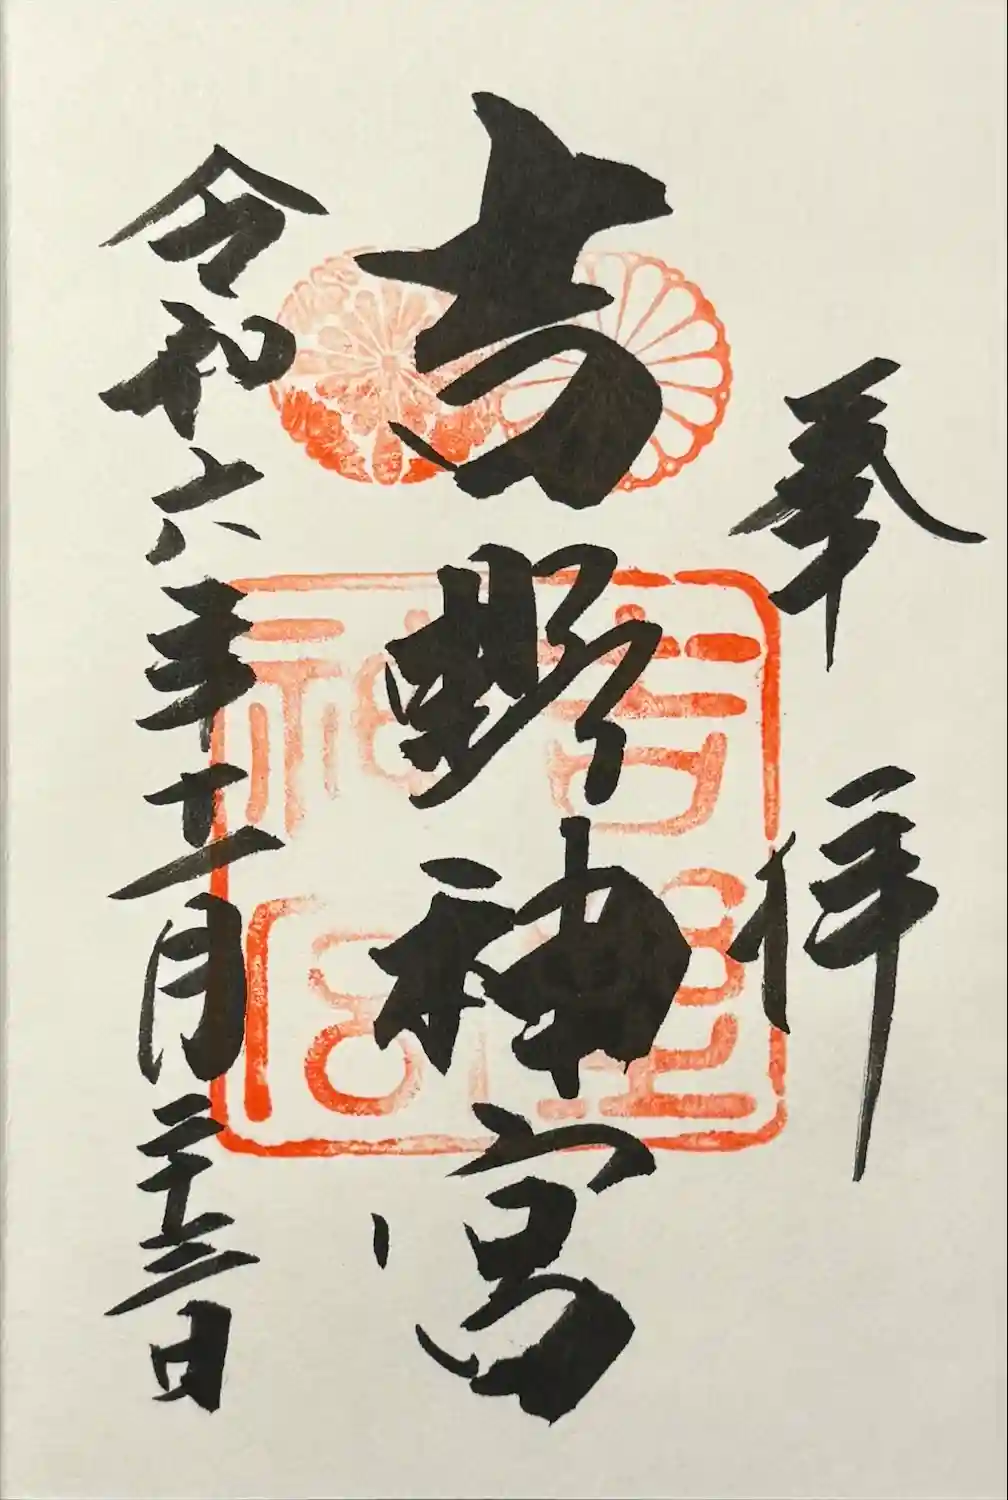 奉拝
吉野神宮
令和六年十一月二十三日
吉野
神宮